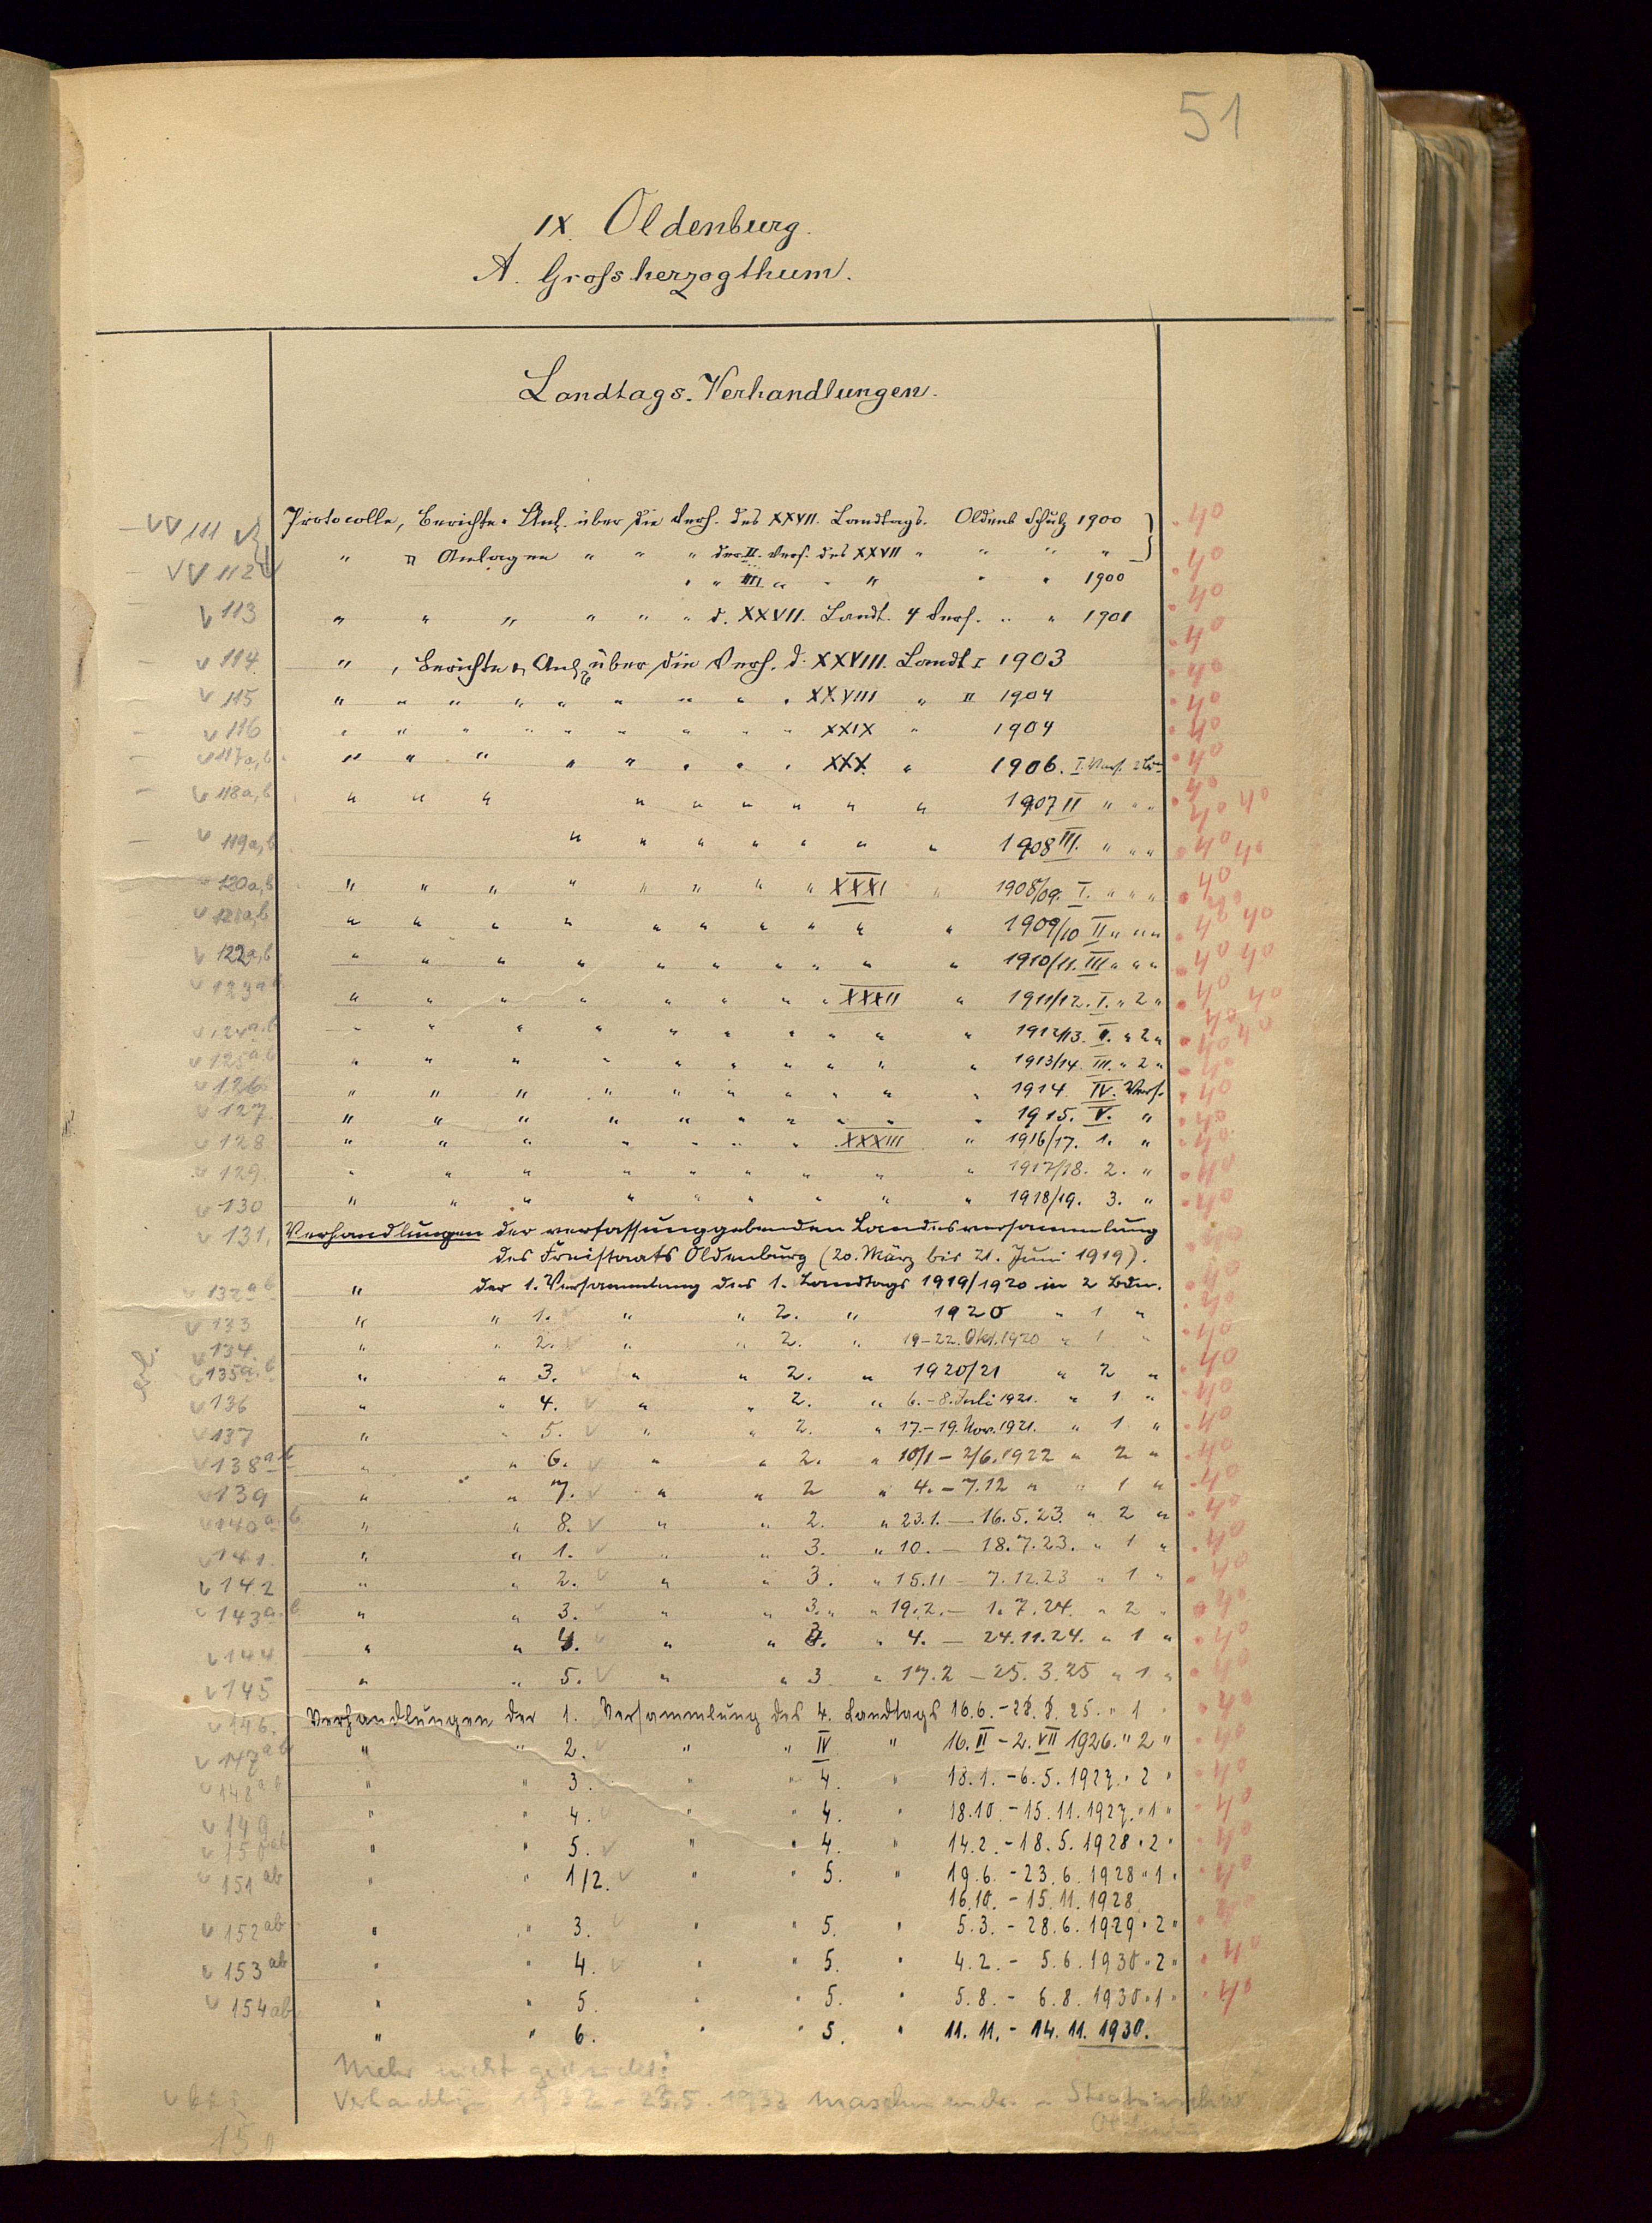 51
IX. Oldenburg.
A. Grossherzogthum.
Landtags-Verhandlungen.
111 Protocolle, Berichte u. Anl. über die Vers. des XXVII. Landtags. Oldenb Schulz 1900
" u Anlagen " " " der II. Vers. des XXVII " " " "
112 " " III. " " " " " 1900
113 " " " " " " d. XXVII. Landt. 4 Vers. " " 1901
114 " , Berichte u. Anl. über die Vers. d. XXVIII. Landt I 1903
115 " " " " " " " " " XXVIII " II 1904
116 " " " " " " " " " XXIX " 1904
117a,b. " " " " " " " " XXX. " 1906. I. Vers. 2 Bde
118a,b " " " " " " " " " 1907 II " " "
119a,b " " " " " " " 1908 III. " " "
120a,b " " " " " " " " XXXI " 1908/09. I. " " "
121a,b " " " " " " " " " " 1909/10 II " " "
122a,b " " " " " " " " " " 1910/11. III " " "
123a b " " " " " " " " XXXII " 1911/12. I. " 2 "
124a.b " " " " " " " " " " 1912/13. II. " 2 "
125a.b " " " " " " " " " " 1913/14. III. " 2 "
126 " " " " " " " " " " 1914. IV. Vers.
127. " " " " " " " " " " 1915. V. "
128 " " " " " " " XXXIII " 1916/17. 1. "
129. " " " " " " " " " 1917/18. 2. "
130 " " " " " " " " " 1918/19. 3. "
131. Verhandlungen der verfassunggebenden Landesversammlung
des Freistaats Oldenburg (20. März bis 21. Juni 1919).
132a b " der 1. Versammlung des 1. Landtags 1919/1920 in 2 Bdn.
133 " " 1. " " 2. " 1920 " 1 "
134. " " 2. " " 2. " 19-22. Okt. 1920 " 1 "
135a.b " " 3. " " 2. " 1920/21 " 2 "
136 " " 4. " " 2. " 6.-8. Juli 1921. " 1 "
137 " " 5. " " 2. " 17.-19. Nov. 1921. " 1 "
138a-b " " 6. " " 2. " 10/1 - 2/6. 1922 " 2 "
139 " " 7. " " 2 " 4. - 7.12 " " 1 "
140a.b. " " 8. " " 2. " 23.1. - 16.5.23. " 2 "
141. " " 1. " " 3. " 10. - 18.7.23. " 1 "
142 " " 2. " " 3. " 15.11 - 7.12.23 " 1 "
143a.b " " 3. " " 3. " 19.2. - 1.7.24. " 2 "
144 " " 4. " " 3. " 4. - 24.11.24. " 1 "
145 " " 5. " " 3 " 17.2 - 25.3.25 " 1 "
146. Verhandlungen der 1. Versammlung des 4. Landtags 16.6.-28.8.25. " 1 "
147ab " " 2. " " IV " 16.II - 2.VII 1926. " 2 "
148ab " " 3. " " 4. " 18.1. - 6.5.1927. " 2 "
149 " " 4. " " 4. " 18.10. - 15.11.1927. " 1 "
150ab " " 5. " " 4. " 14.2. - 18.5.1928 " 2 "
151ab " " 1/2. " " 5. " 19.6. - 23.6.1928 " 1 "
16.10. - 15.11.1928
152ab " " 3. " " 5. " 5.3. - 28.6.1929 " 2 "
153ab " " 4. " " 5. " 4.2. - 5.6.1930 " 2 "
154ab " " 5. " " 5. " 5.8. - 6.8.1930 " 1 "
" " 6. " " 5. " 11.11. - 14.11.1930.
Mehr nicht gedruckt!